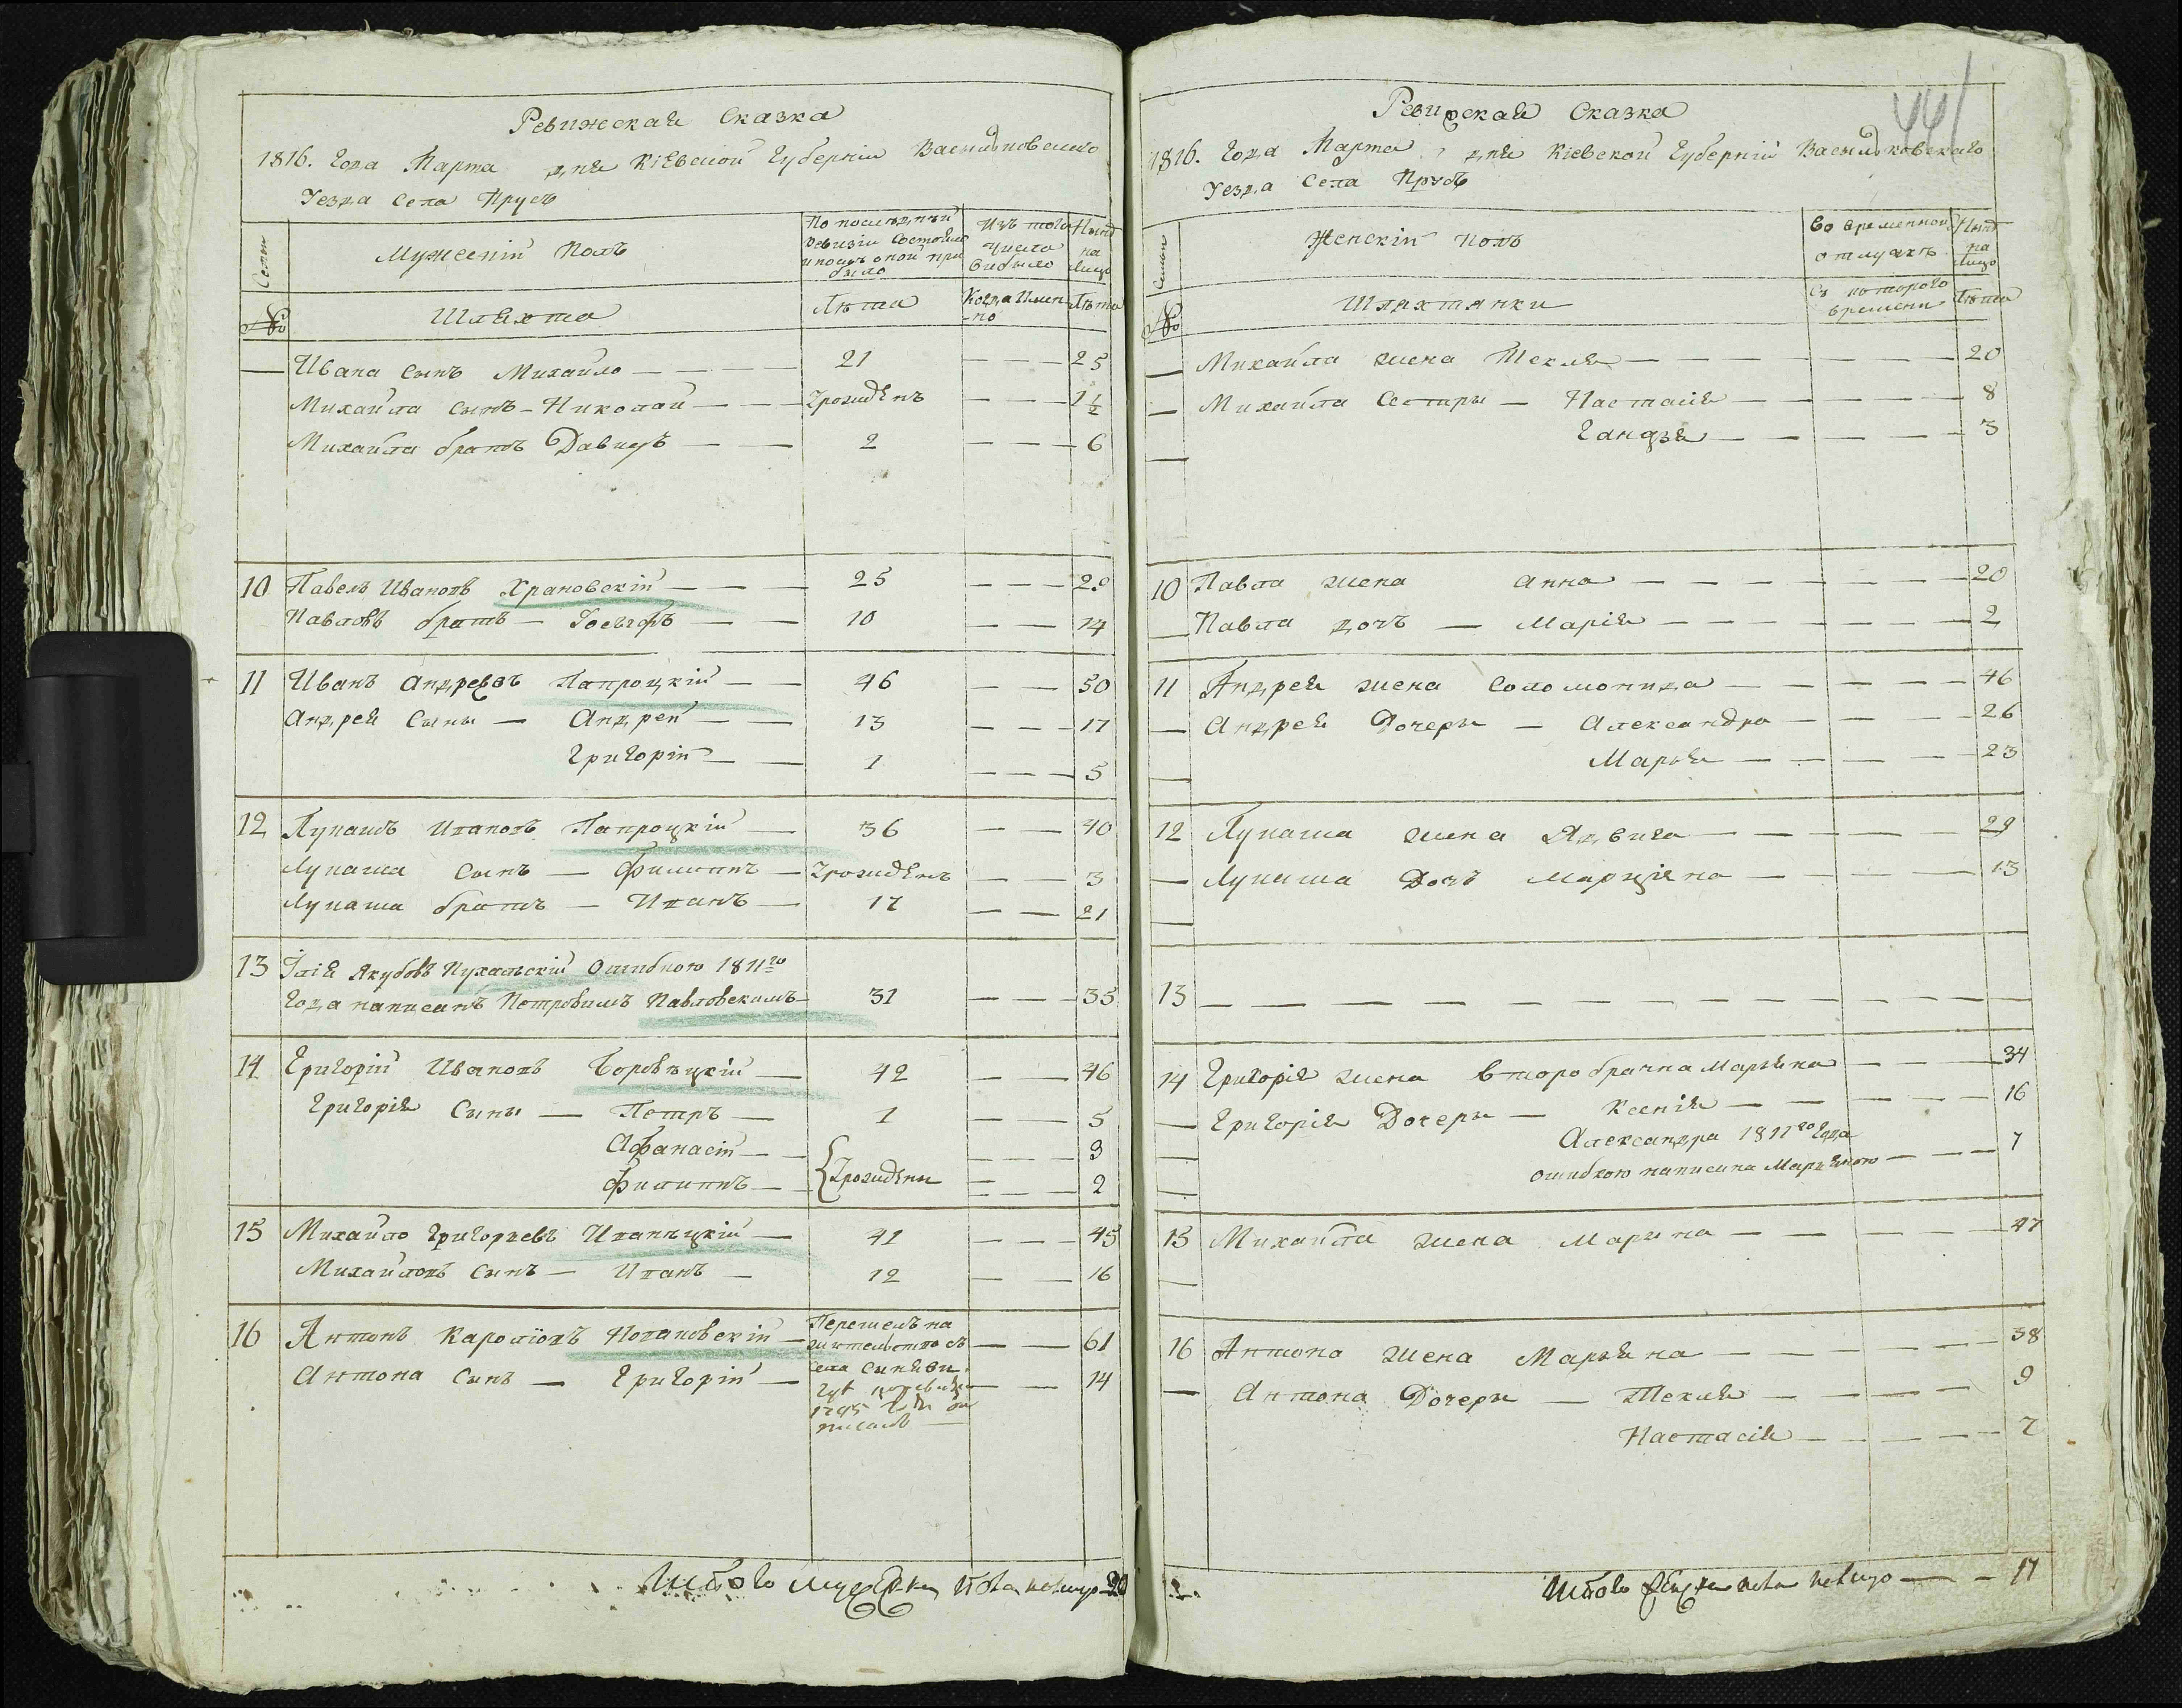 Ревижская Сказка
1816. Года Марта дня Кіевской Губерніи Васильковского
Уезда Села Прусъ
Семьи
Мужескій Полъ
По последней ревизіи состояло и после оной прибыло
Изъ того числа выбыло
Ныне на лицо
№
Шляхта
Лѣта
Когда имен-но
Лѣта
— Ивана Сынъ Михайло — 21 — 25
Михайла Сынъ - Николай — Зрожденъ — 1 1/2
Михайла братъ Давидъ — 2 — 6
10 Павелъ Ивановъ Храновскій — 25 — 29
Павловъ братъ — Іосифъ — 10 — 14
11 Иванъ Андреевъ Папроцкій — 46 — 50
Андрея Сыны — Андрей — 13 — 17
Григорій — 1 — 5
12 Лукашъ Ивановъ Папроцкій — 36 — 40
Лукаша Сынъ — Филиппъ — Зрожденъ — 3
Лукаша братъ — Иванъ — 17 — 21
13 Ілія Якубовъ Пухальскій Ошибкою 1811го
Года написанъ Петровимъ Павловскимъ — 31 — 35
14 Григорій Ивановъ Боровѣцкій — 42 — 46
Григорія Сыны — Петръ — 1 — 5
Афанасій — 3
Филиппъ — Зрождены — 2
15 Михайло Григорьевъ Иваницкій — 41 — 45
Михайловъ Сынъ — Иванъ — 12 — 16
16 Антонъ Каролювъ Новаковскій — Перешелъ на жителство съ — 61
Антона Сынъ — Григорій — села Синяви — 14
гдѣ по ревизіи
1795 года за
писанъ —
Итого мужеска пола налицо 20
441
Ревижская Сказка
1816. Года Марта дня Кіевской Губерніи Васильковскаго
Уезда Села Прусъ
Семьи
Женскій Полъ
Во временной отлучкѣ
Ныне на лицо
№
Шляхтянки
Съ которого времени
Лѣта
— Михайла жена Текля — 20
— Михайла Сестры — Настасія — 8
Гандзя — 3
10 Павла жена Анна — 20
— Павла дочъ — Марія — 2
11 Андрея жена Соломонида — 46
— Андрея Дочеры — Александра — 26
Марья — 23
12 Лукаша жена Ядвига — 29
— Лукаша Дочъ Марціяна — 13
13 —
14 Григорія жена второбрачна Марьяна — 34
— Григорія Дочеры — Ксенія — 16
Александра 1811го года
ошибкою написана Марьяною — 7
15 Михайла жена Марина — 47
16 Антона жена Марьяна — 38
— Антона Дочеры — Текля — 9
Настасія — 7
Итого женска пола налицо — 17